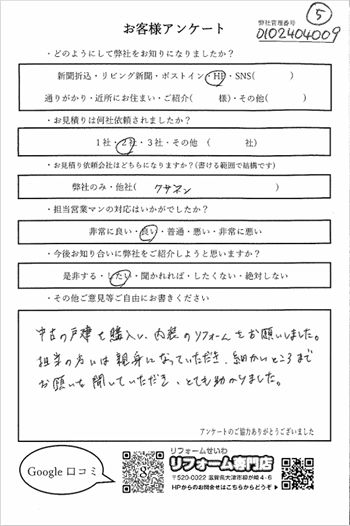 お客様アンケート
弊社管理番号
⑤
D102404009
・どのようにして弊社をお知りになりましたか？
新聞折込・リビング新聞・ポストイン・HP・SNS( )
通りがかり・近所にお住まい・ご紹介( 様)・その他( )
・お見積りは何社依頼されましたか？
1社・2社・3社・その他 ( 社)
・お見積り依頼会社はどちらになりますか？(書ける範囲で結構です)
弊社のみ・他社( クサネン )
・担当営業マンの対応はいかがでしたか？
非常に良い・良い・普通・悪い・非常に悪い
・今後お知り合いに弊社をご紹介しようと思いますか？
是非する・したい・聞かれれば・したくない・絶対しない
・その他ご意見等ご自由にお書きください
中古の戸建を購入し、内装のリフォームをお願いしました。
担当の方には親身になっていただき、細かいところまで
お願いを聞していただき、とても助かりました。
アンケートのご協力ありがとうございました
Google 口コミ
リフォームせいわ
リフォーム専門店
〒520-0022 滋賀県大津市柳が崎4-6
HPからのお問合せはこちらからどうぞ▶